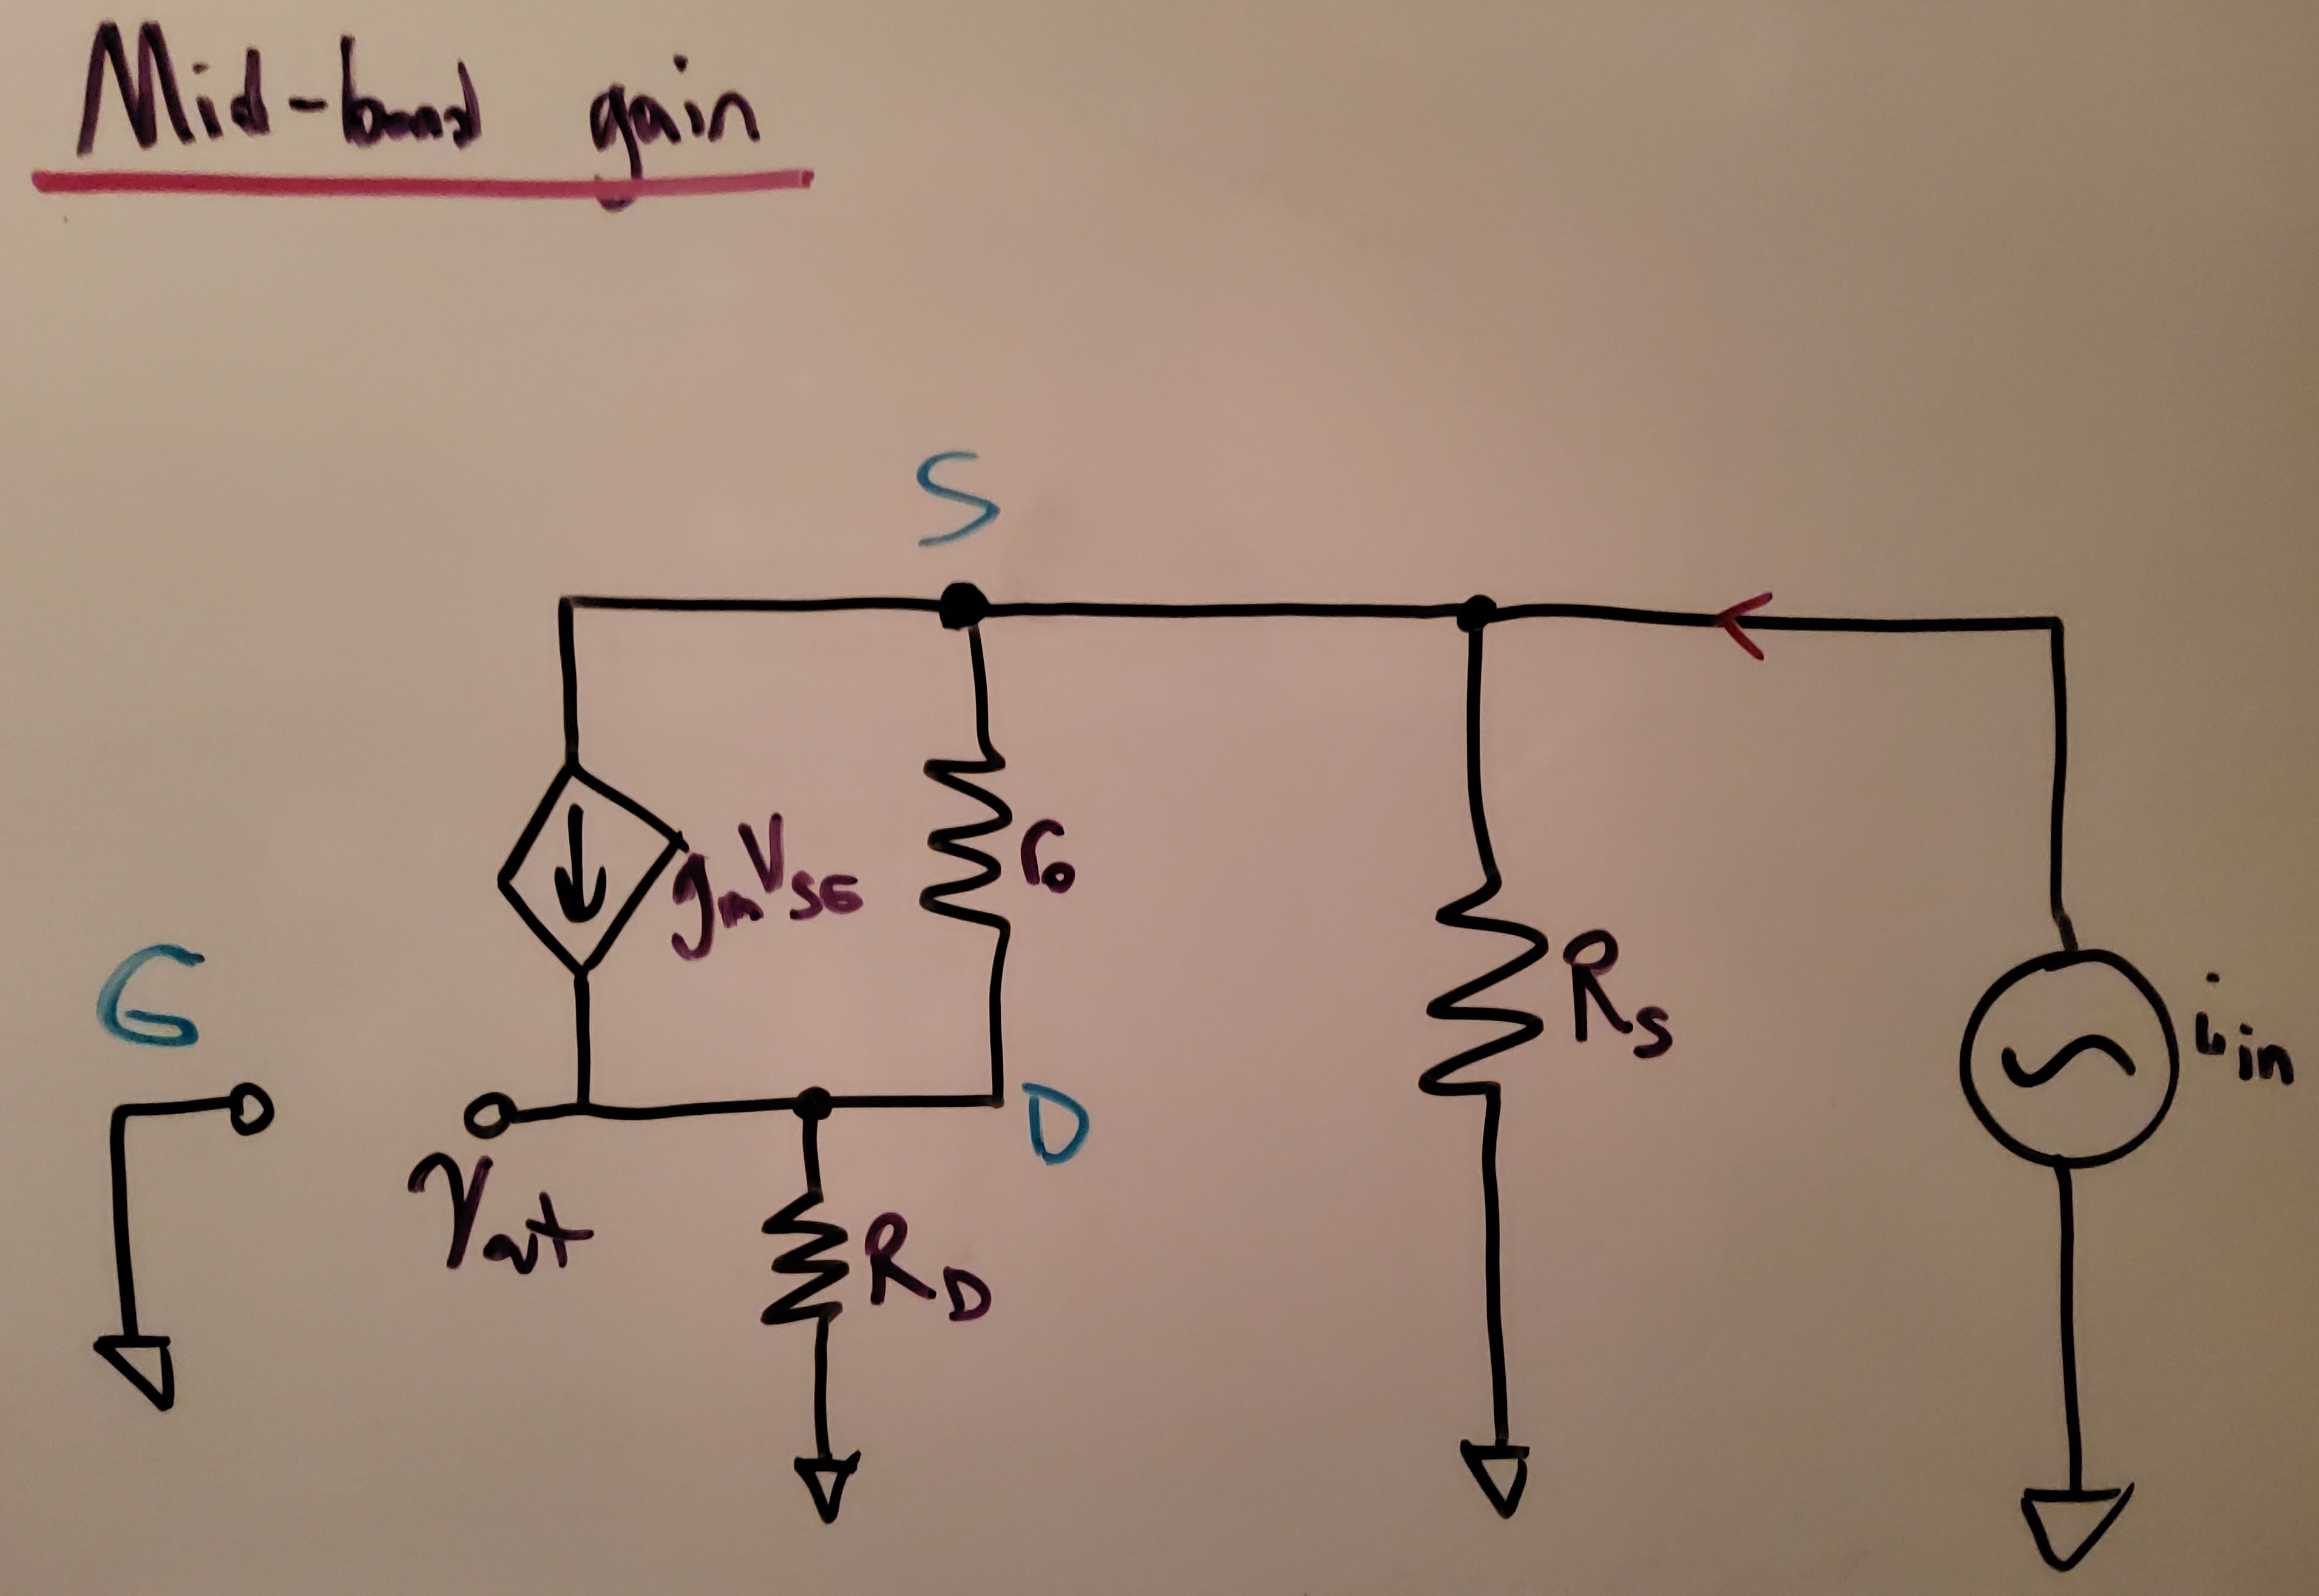 Mid-band gain
S
gmVSG
ro
G
RS
iin
D
Vout
RD